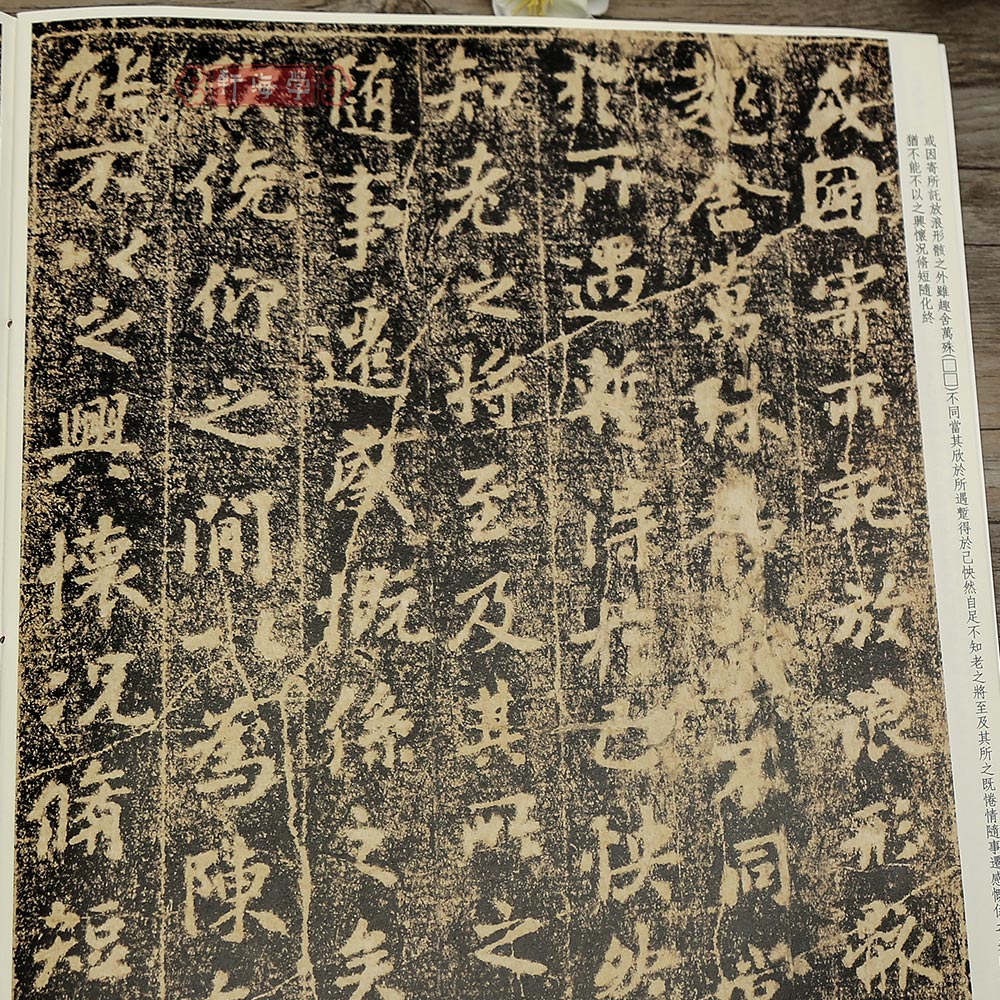 或因寄所託放浪形骸之外雖趣舍萬殊(□□)不同當其欣於所遇蹔得於己怏然自足不知老之將至及其所之既惓情隨事遷感慨係
猶不能不以之興懷况脩短隨化終
或因寄所託放浪形骸
趣舍萬殊不同當
於所遇蹔得於己怏然
知老之將至及其所之
随事遷感慨係之矣
俛仰之間以為陳
能不以之興懷況脩短
學海軒